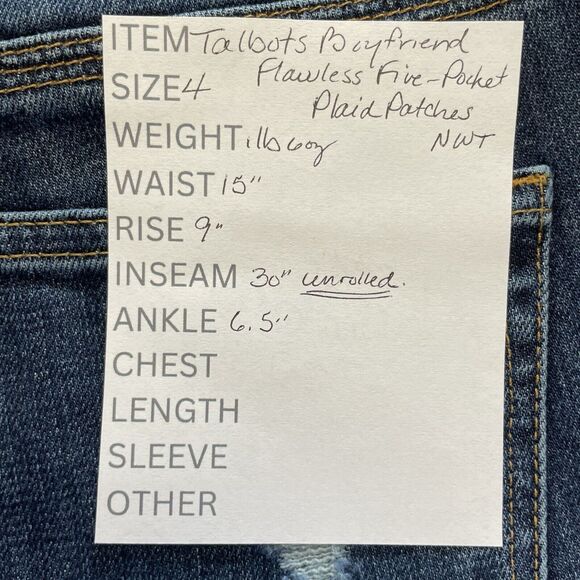 ITEM Talbots Boyfriend
Flawless Five-Pocket
SIZE 4
Plaid Patches
WEIGHT 1lb 6oz NWT
WAIST 15"
RISE 9"
INSEAM 30" unrolled.
ANKLE 6.5"
CHEST
LENGTH
SLEEVE
OTHER